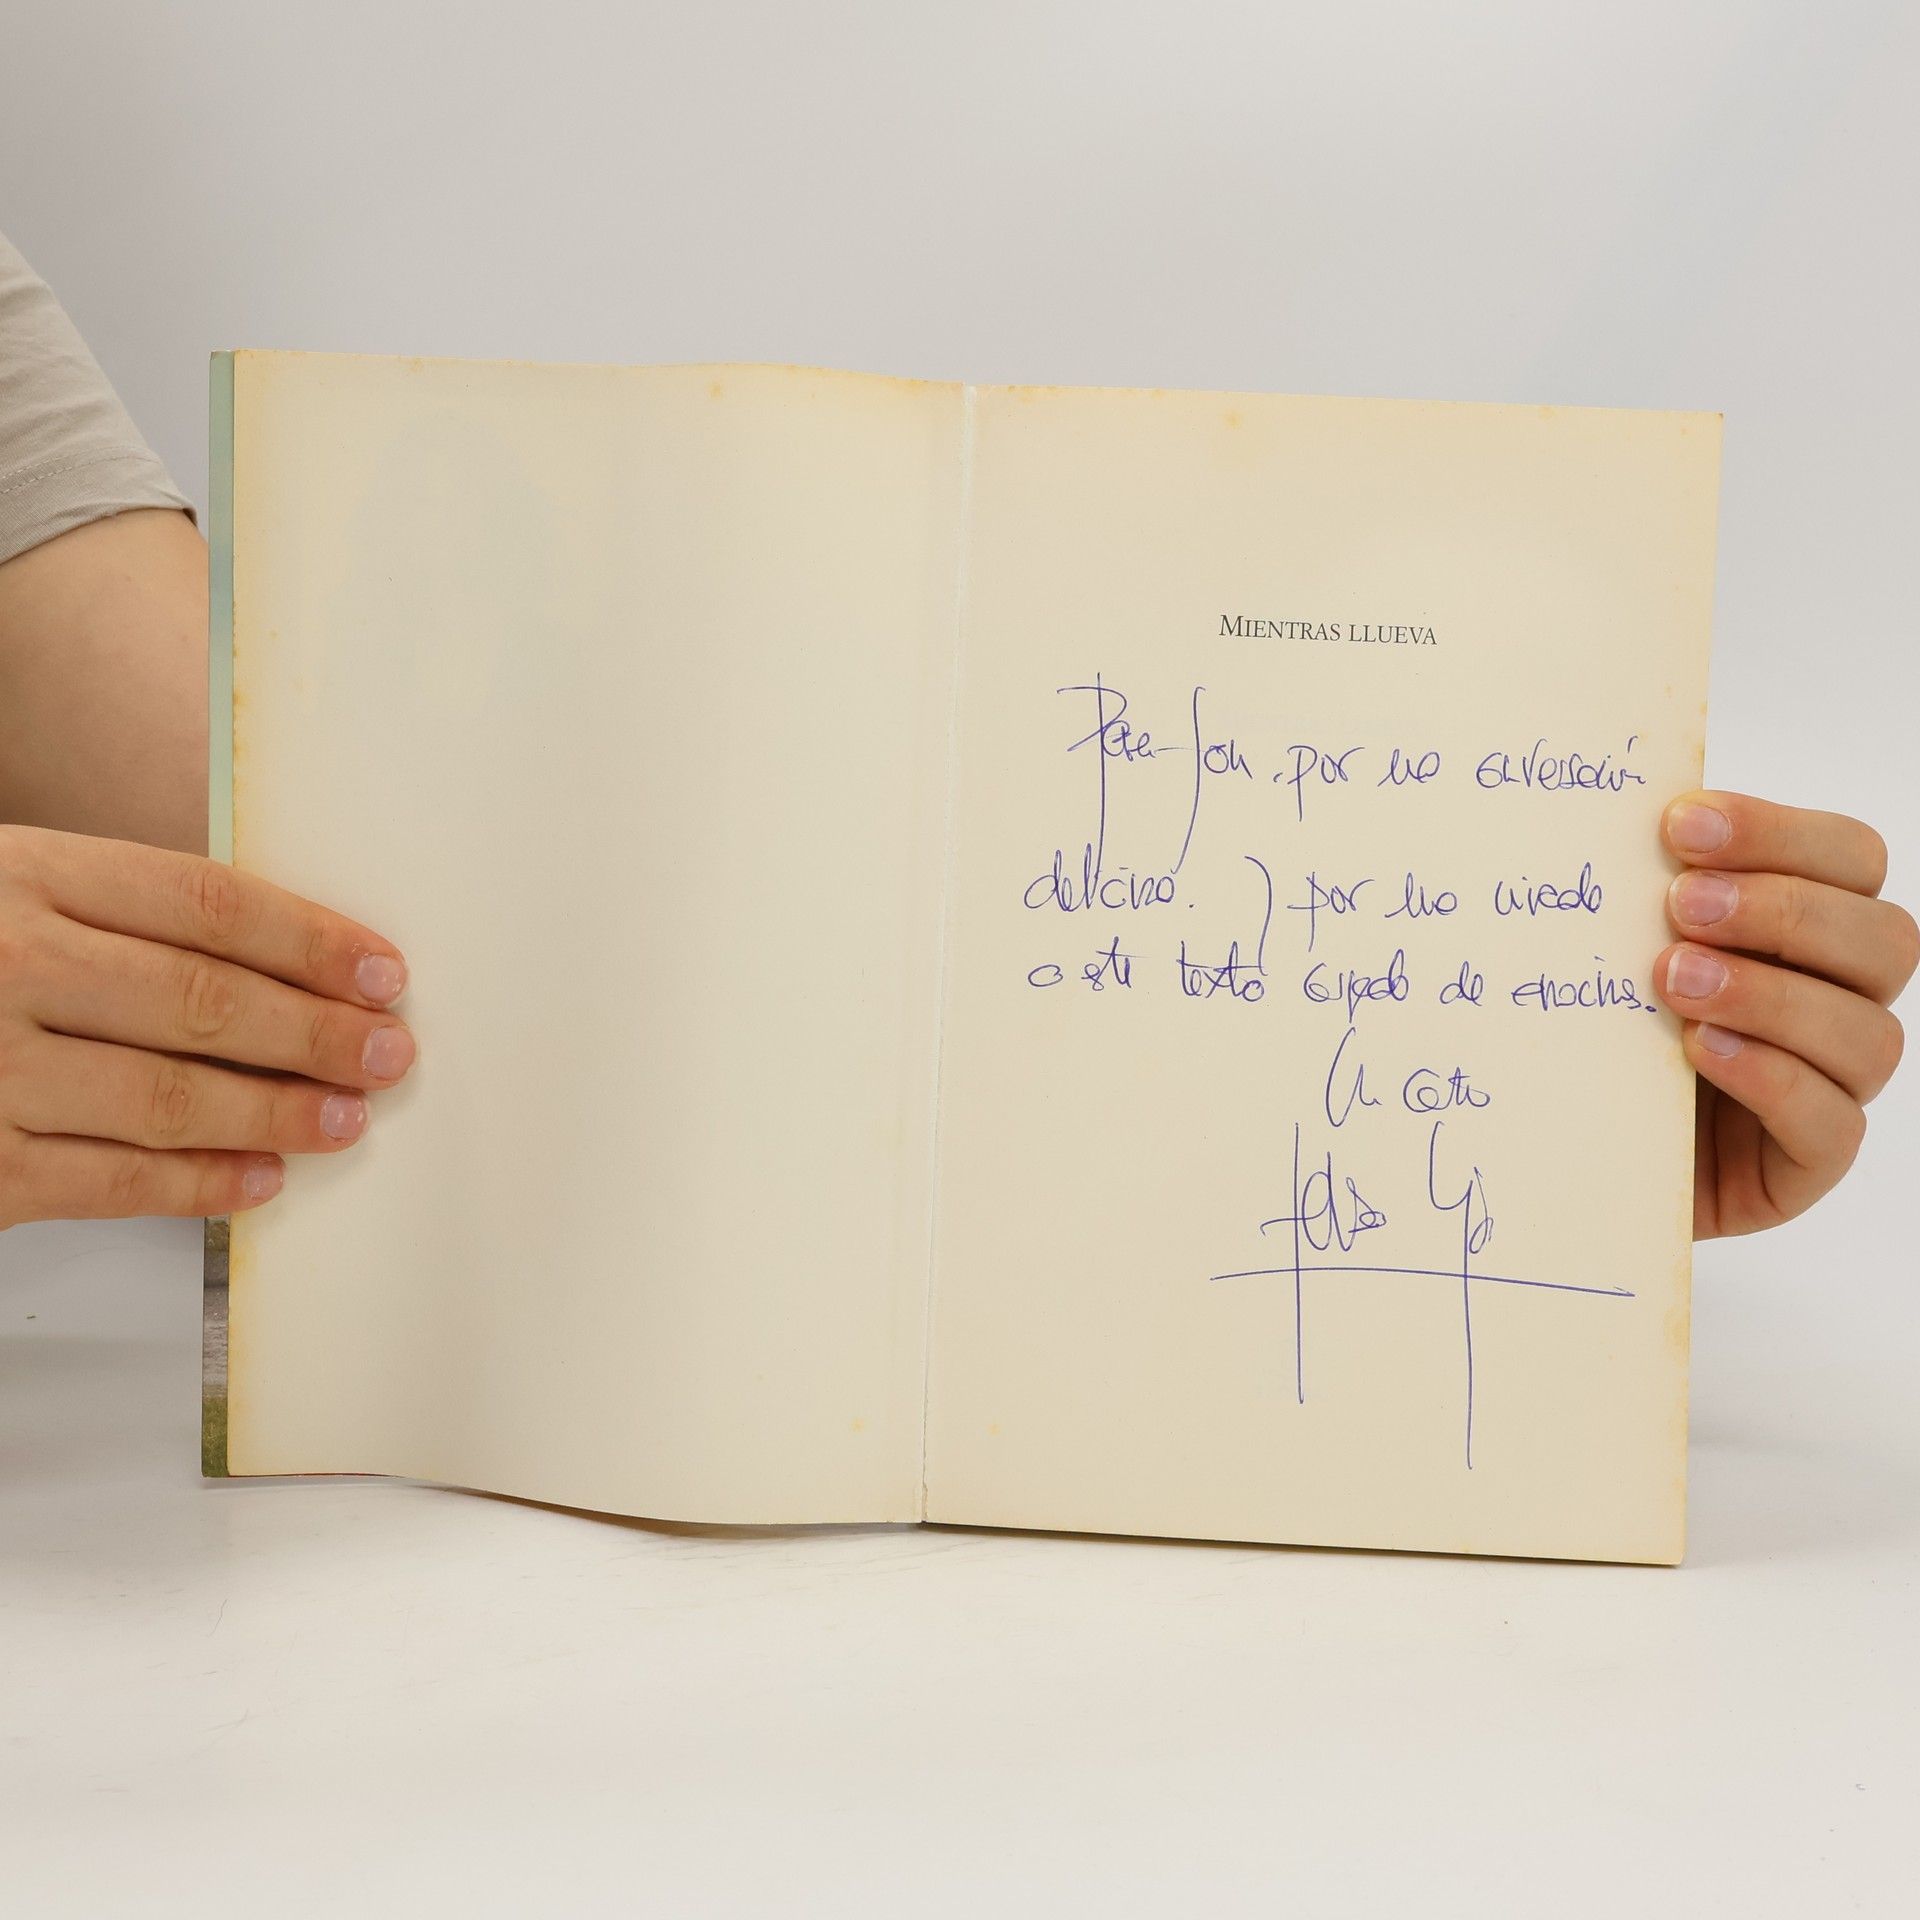 MIENTRAS LLUEVA
Para Jon, por una conversación
deliciosa. y por una mirada
a este texto cargado de emociones.
Un